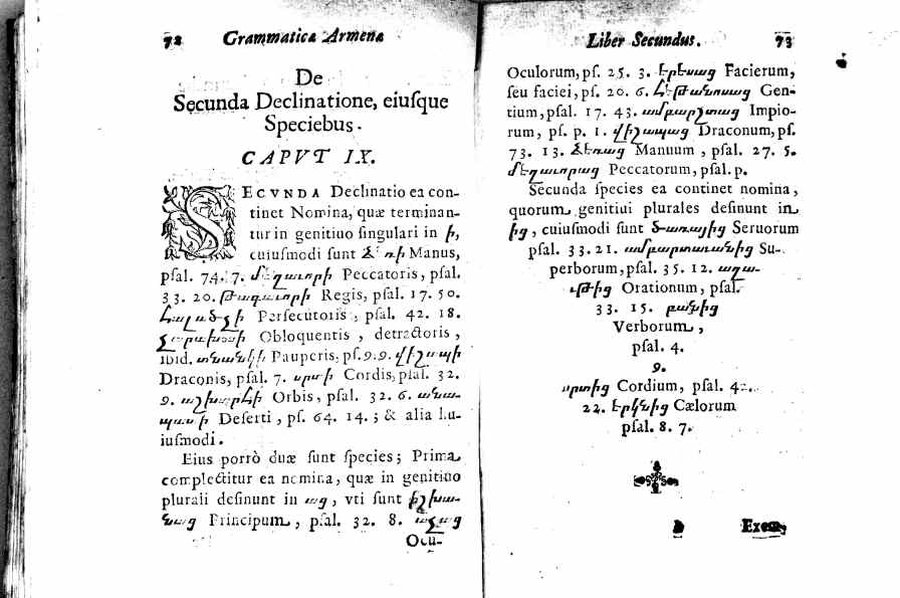 72 Grammatica Armena
De
Secunda Declinatione, eiuſque
Speciebus.
CAPVT IX.
SECVNDA Declinatio ea con-
tinet Nomina, quæ terminan-
tur in genitiuo ſingulari in ի,
cuiuſmodi ſunt Manus,
pſal. 74. 7. մեղաւորի Peccatoris, pſal.
33. 20. թագաւորի Regis, pſal. 17. 50.
հալածչի Perſecutoris, pſal. 42. 18.
Obloquentis, detractoris,
ibid. տնանկի Pauperis, pſ. 9. 9. վիշապի
Draconis, pſal. 7. սրտի Cordis, pſal. 32.
9. աշխարհի Orbis, pſal. 32. 6. անա-
պատի Deſerti, pſ. 64. 14.; & alia hu-
iuſmodi.
Eius porrò duæ ſunt ſpecies; Prima
complectitur ea nomina, quæ in genitiuo
plurali deſinunt in աց, vti ſunt իշխա-
նաց Principum, pſal. 32. 8. աչաց
Ocu-
Liber Secundus. 73
Oculorum, pſ. 25. 3. երեսաց Facierum,
ſeu faciei, pſ. 20. 6. հեթանոսաց Gen-
tium, pſal. 17. 43. ամբարշտաց Impio-
rum, pſ. p. 1. վիշապաց Draconum, pſ.
73. 13. ձեռաց Manuum, pſal. 27. 5.
մեղաւորաց Peccatorum, pſal. p.
Secunda ſpecies ea continet nomina,
quorum genitiui plurales deſinunt in
ից, cuiuſmodi ſunt ծառայից Seruorum
pſal. 33. 21. ամբարտաւանից Su-
perborum, pſal. 35. 12. աղա-
ւթից Orationum, pſal.
33. 15. բանից
Verborum,
pſal. 4.
9.
սրտից Cordium, pſal. 4.
22. երկնից Cælorum
pſal. 8. 7.
Exem-